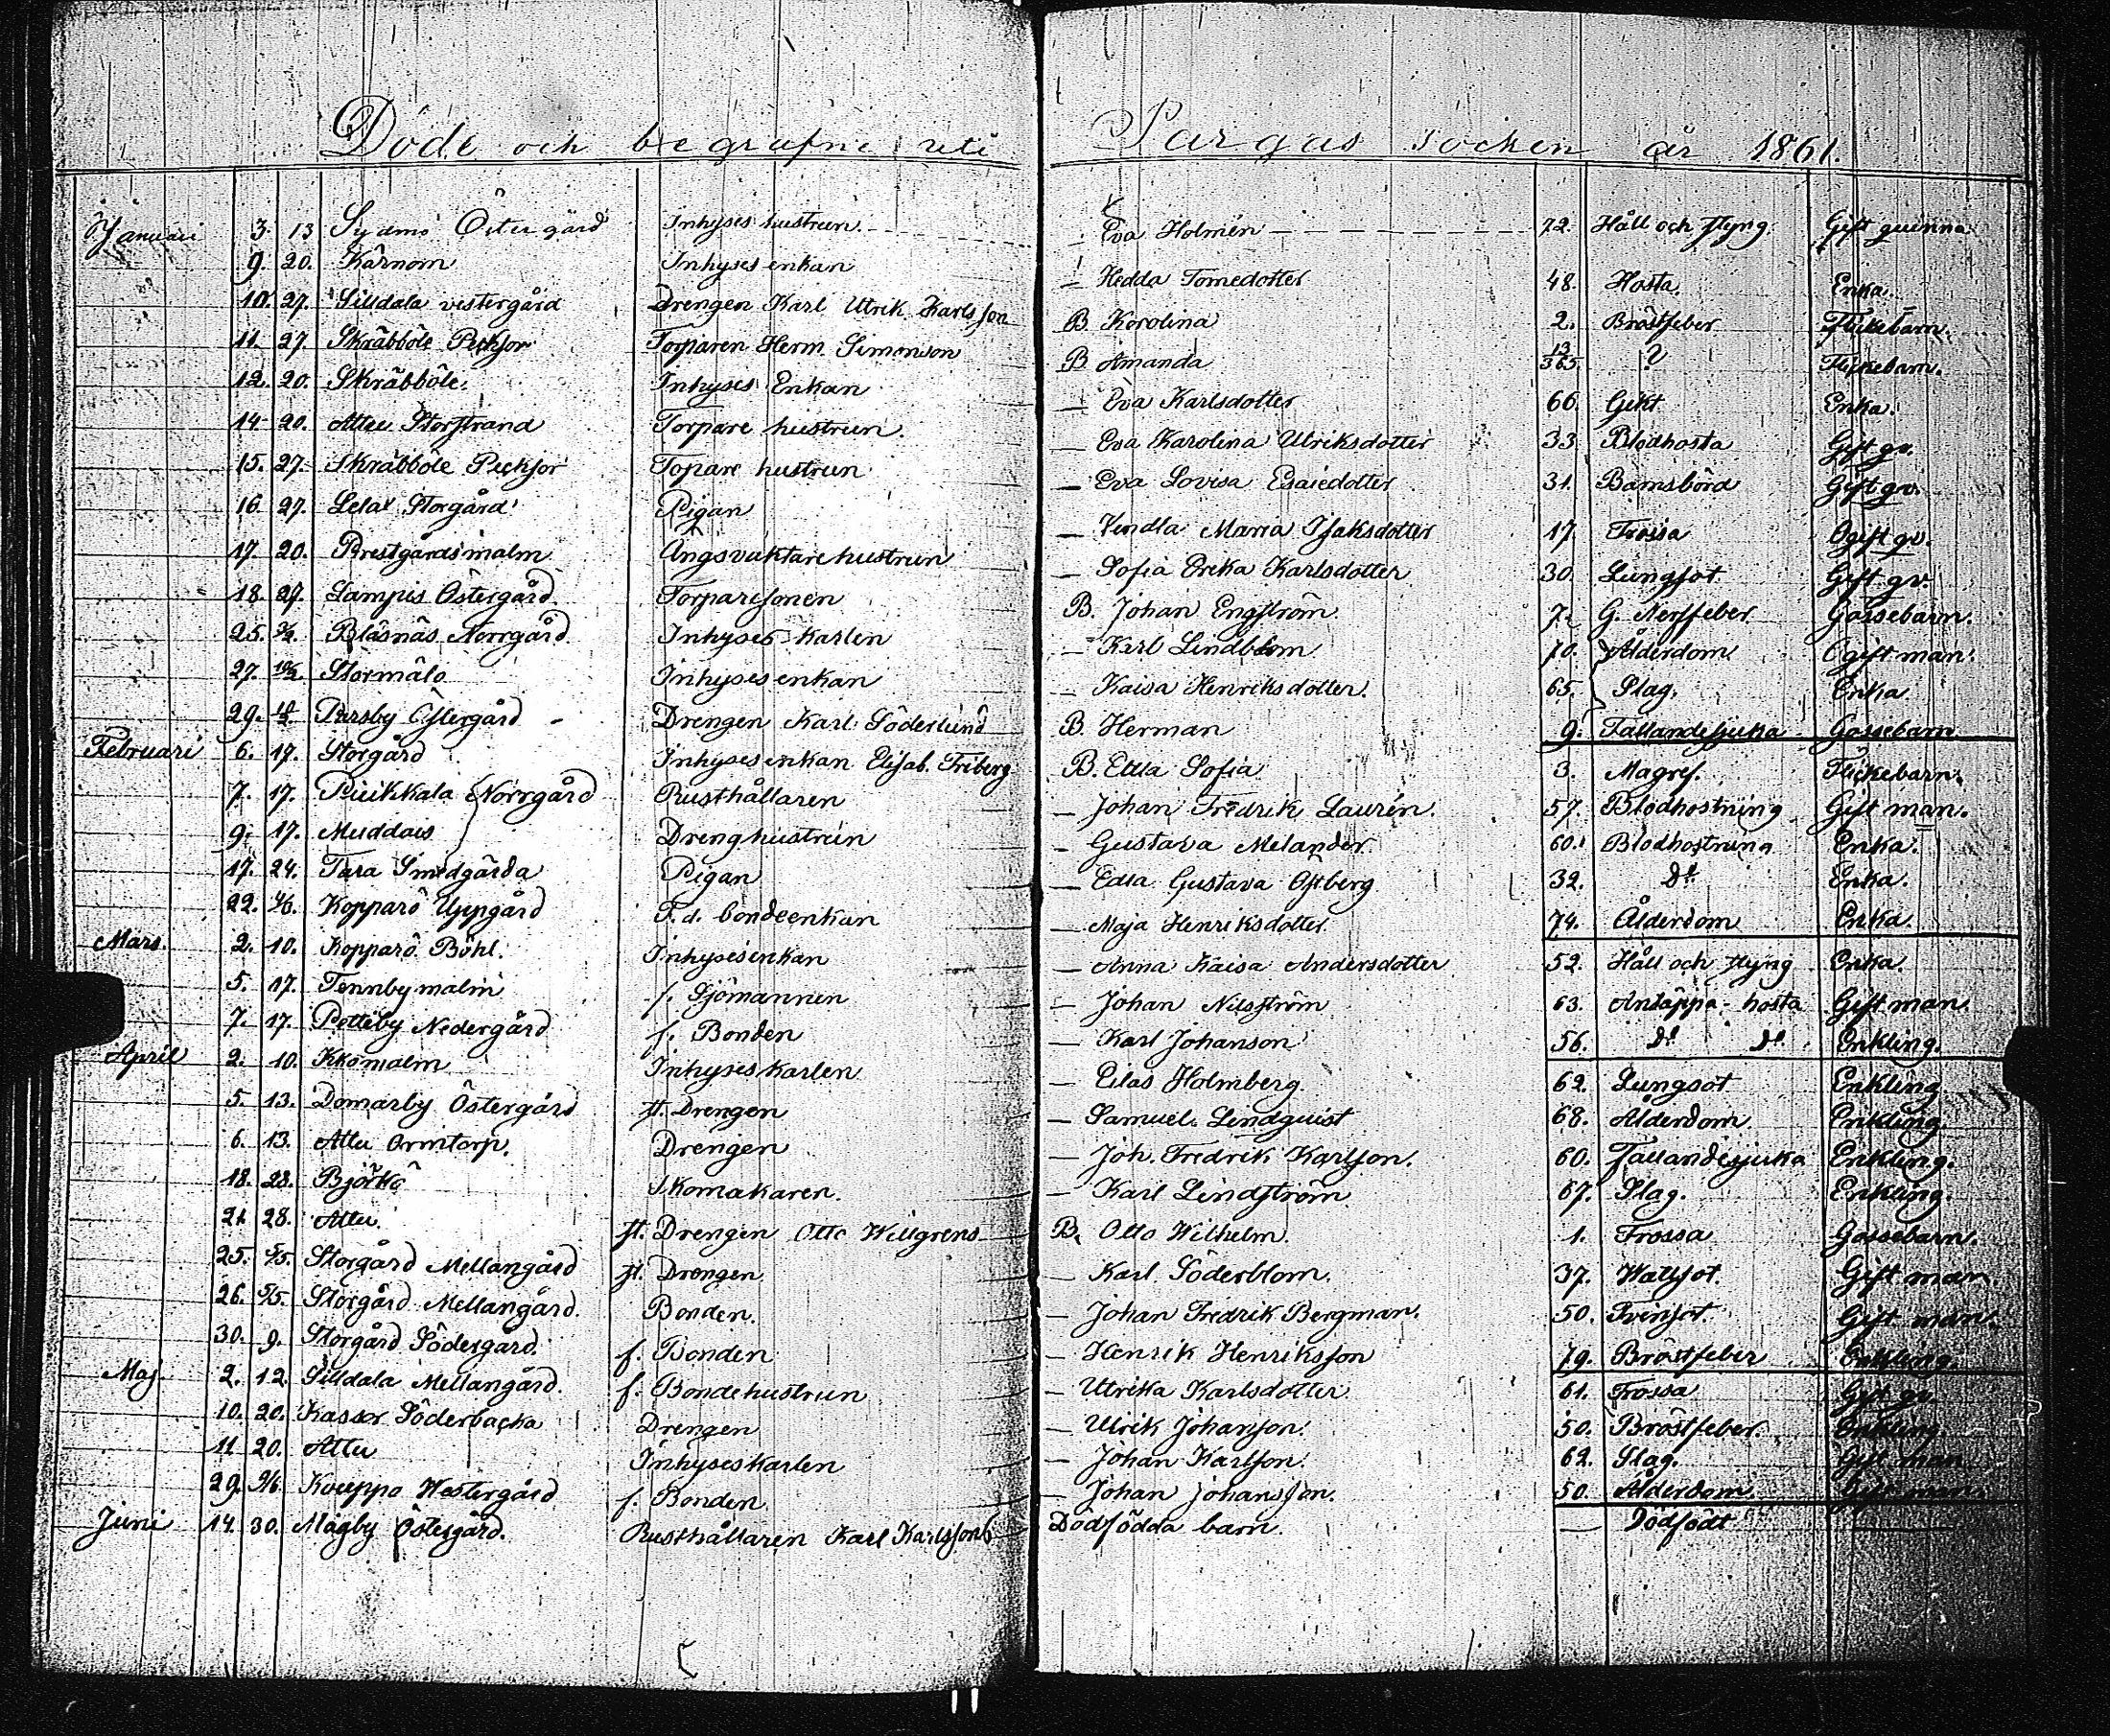 Döde och begrafne uti Pargas socken år 1861.
Januari 3. 13 Sydmo Östergård Inhyses hustrun — Eva Holmén 72. Håll och styng Gift quinna
9. 20. Kårnom Inhyses enkan — Hedda Tomedotter 48. Hosta. Enka.
10. 27. Silldala vestergård Drengen Karl Ulrik Karlsson B. Korolina 2. Bröstfeber Flickebarn.
11. 27. Skräbböle Peckjor Torparen Herm. Simonson B. Amanda 13/365 ? Flickebarn.
12. 20. Skräbböle. Inhyses Enkan — Eva Karlsdotter 66. Gikt Enka.
14. 20. Attu Storstrand Torpare hustrun. — Eva Karolina Ulriksdotter 33. Blodhosta Gift qv.
15. 27. Skräbböle Peckjor Topare hustrun — Eva Lovisa Esaiedotter 31. Barnsbörd Gift qv.
16. 27. Lelax Storgård Pigan — Vendla Maria Isaksdotter 17. Frossa Ogift qv.
17. 20. Prestgårdsmalm Ängsvaktare hustrun — Sofia Erika Karlsdotter 30. Lungsot Gift qv.
18. 27. Lampis Östergård Torparesonen B. Johan Engström. 7. G. Nerffeber Gossebarn.
25. 3/2. Bläsnäs Norrgård Inhyses karlen — Karl Lindblom 70. Ålderdom. Ogift man.
27. 10/2. Stormålo Inhyses enkan — Kaisa Henriksdotter. 65. Slag. Enka
29. Parsby Östergård Drengen Karl Söderlund B. Herman 9. Fallandesjuka Gossebarn
Februari 6. 17. Storgård Inhyses enkan Elisab. Friberg B. Edla Sofia 3. Magref. Flickebarn.
7. 17. Piukkala Norrgård Rusthållaren — Johan Fredrik Laurén. 57. Blodhostning Gift man.
9. 17. Muddais Drenghustrun — Gustava Melander. 60. Blodhostning Enka.
17. 24. Tara Smedgårda Pigan — Edla Gustava Östberg 32. do Enka.
22. Kopparö Uppgård F.d. bondeenkan — Maja Henriksdotter. 74. Ålderdom Enka.
Mars. 2. 10. Kopparö Böhl. Inhysesenkan — Anna Kaisa Andersdotter 52. Håll och styng Enka.
5. 17. Tennbymalm f. Sjömannen — Johan Nilsström 63. Andtäppa-hosta Gift man.
7. 17. Petteby Nedergård f. Bonden — Karl Johanson 56. do do Enkling.
April 2. 10. Kkomalm Inhyses karlen — Elias Holmberg. 62. Lungsot Enkling
5. 13. Domarby Östergård st. Drengen — Samuel Lindquist 68. Ålderdom. Enkling.
6. 13. Attu Ormtorp. Drengen — Joh. Fredrik Karlson. 60. Fallandesjuka Enkling.
18. 28. Björkö Skomakaren. — Karl Lindström 67. Slag. Enkling.
21. 28. Attu. st. Drengen Otto Willgrens B. Otto Wilhelm. 1. Frossa Gossebarn.
25. 5/5. Storgård Mellangård st. Drengen — Karl Söderblom. 37. Wattsot Gift man
26. 5/5. Storgård Mellangård. Bonden. — Johan Fredrik Bergman. 50. Tvinsot. Gift man.
30. 9. Storgård Södergård. f. Bonden — Henrik Henriksson 79. Bröstfeber Enkling.
Maj. 2. 12. Silldala Mellangård. f. Bondehustrun — Ulrika Karlsdotter 61. Frossa Gift qv.
10. 20. Kassor Söderbacka Drengen — Ulrik Johanson. 50. Bröstfeber. Enkling
11. 20. Attu Inhyseskarlen — Johan Karlson. 62. Slag. Gift man
29. Kouppo Westergård f. Bonden — Johan Johansson. 50. Ålderdom. Gift man.
Juni 14. 30. Mågby Östergård. Rusthållaren Karl Karlssons Dödfödda barn. — Dödfödt